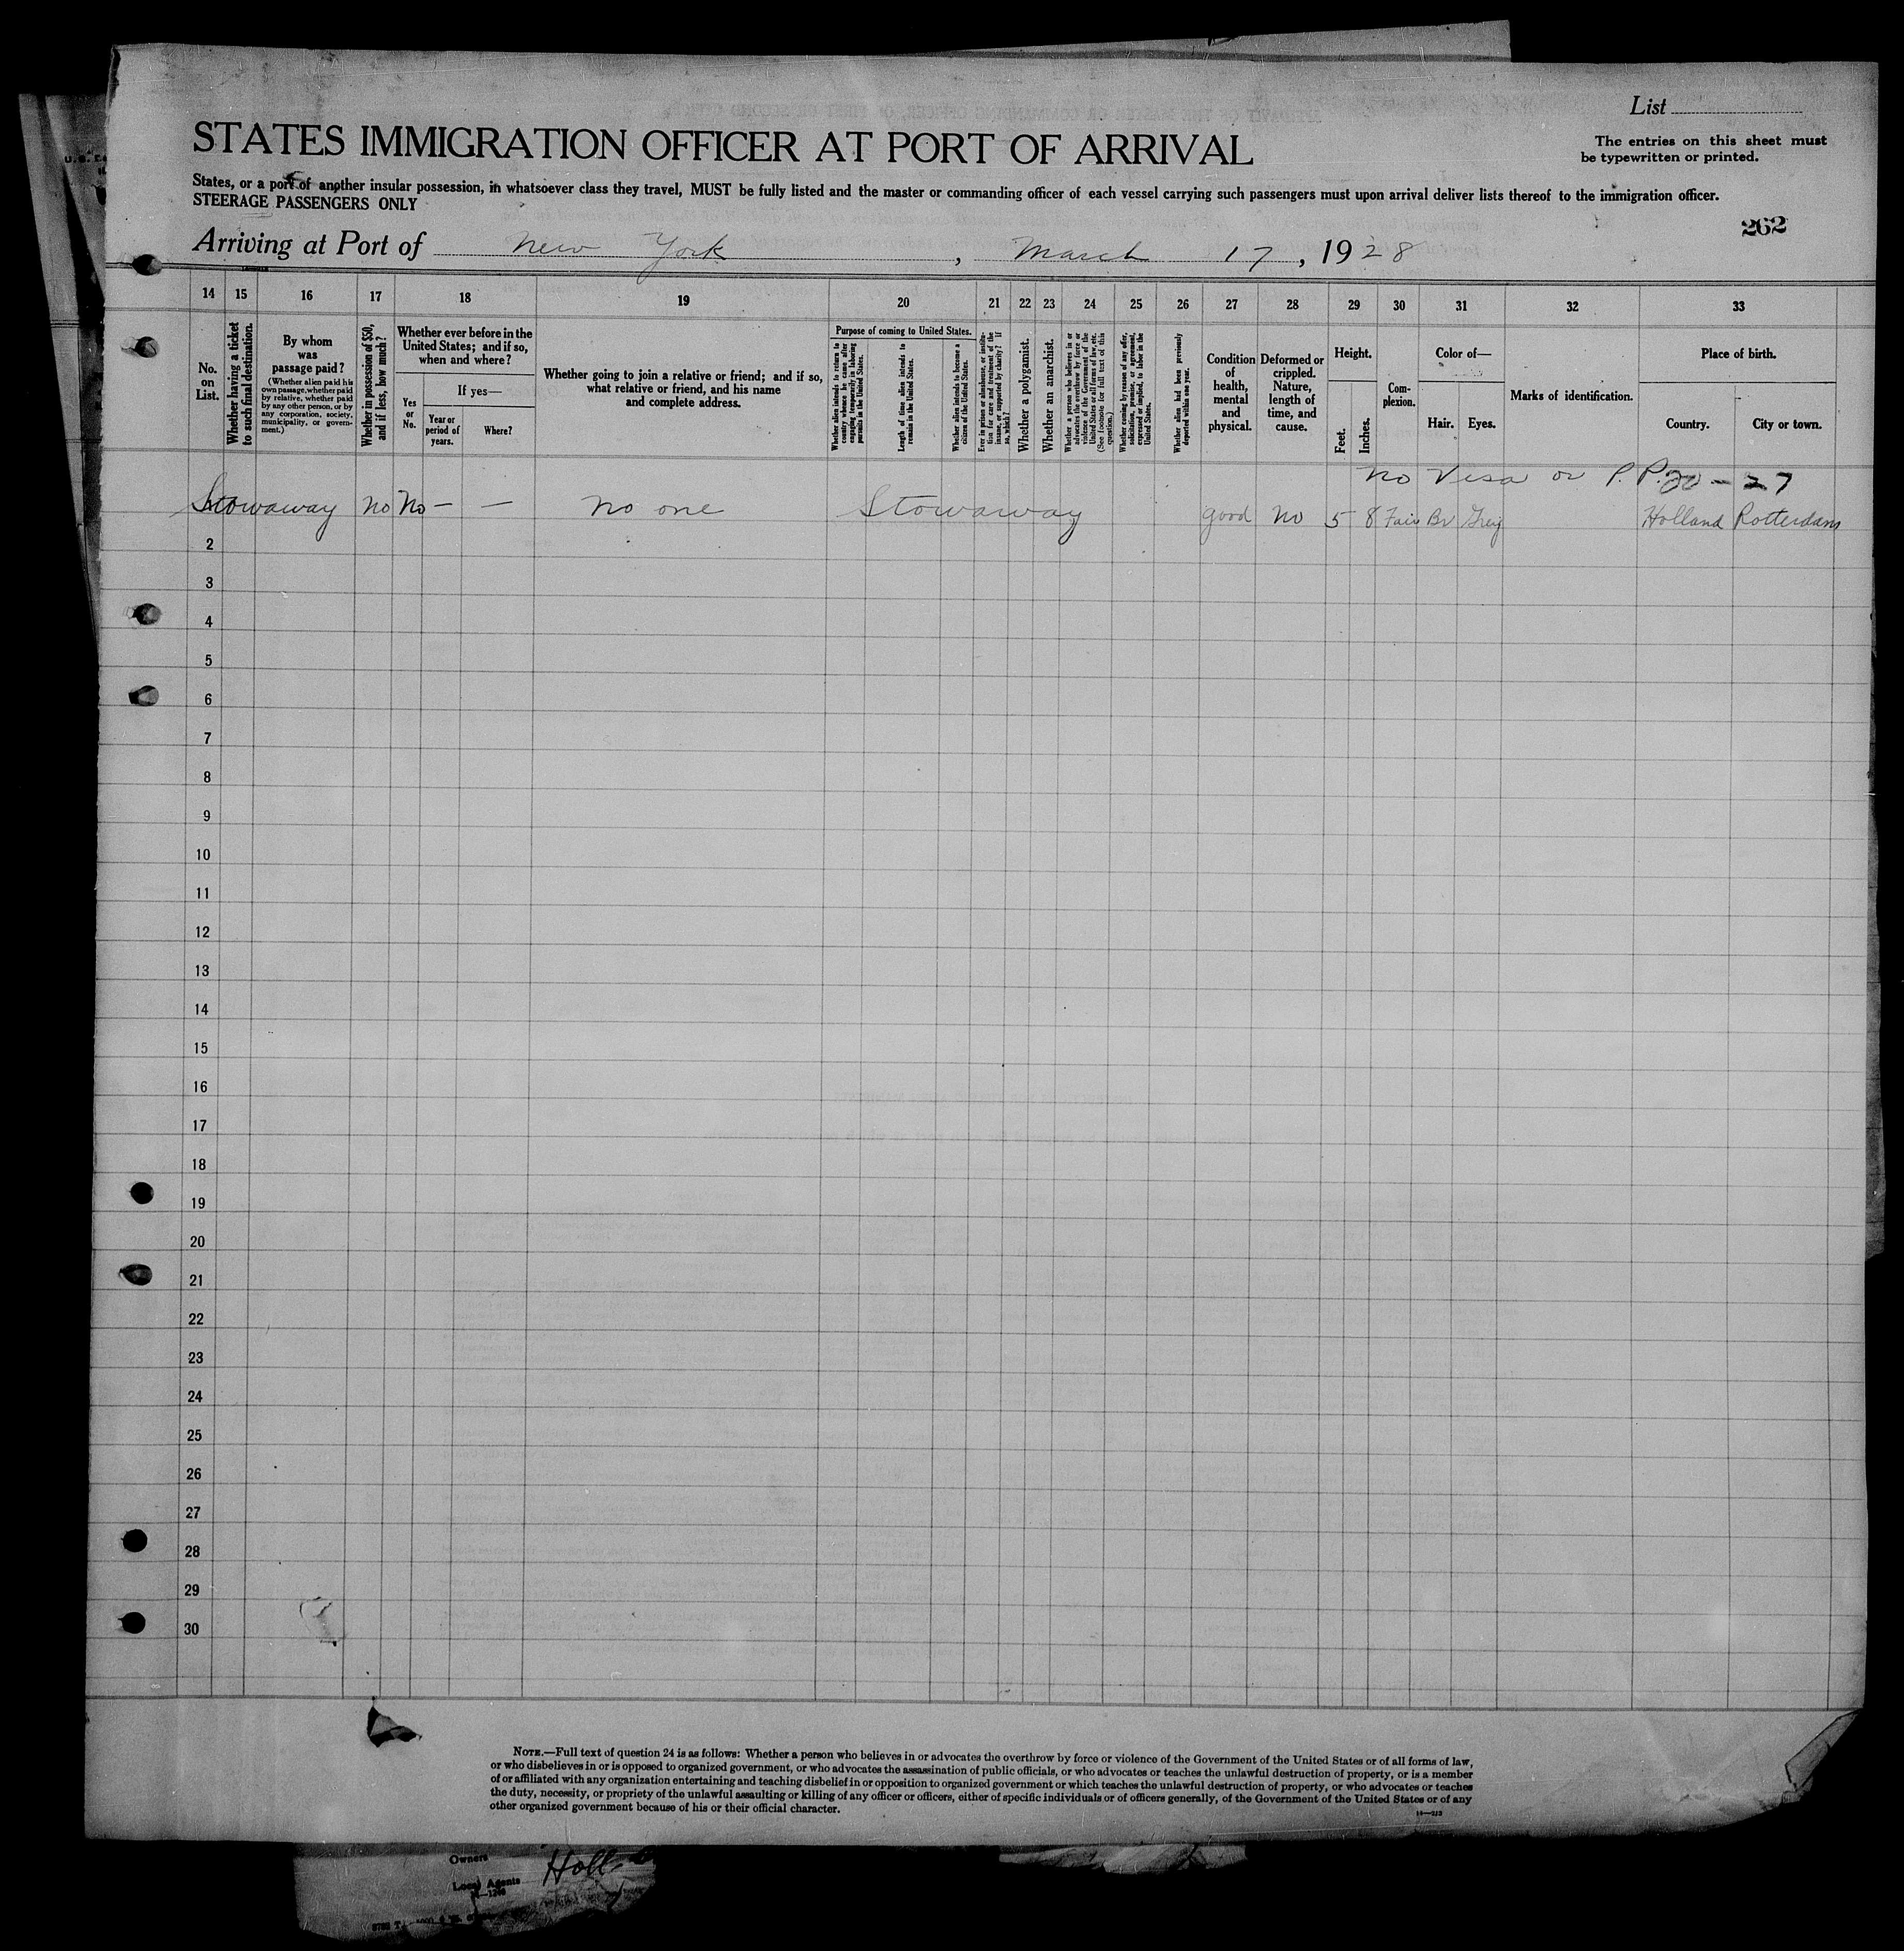 List
The entries on this sheet must
be typewritten or printed.
STATES IMMIGRATION OFFICER AT PORT OF ARRIVAL
States, or a port of another insular possession, in whatsoever class they travel, MUST be fully listed and the master or commanding officer of each vessel carrying such passengers must upon arrival deliver lists thereof to the immigration officer.
STEERAGE PASSENGERS ONLY
262
Arriving at Port of New York, March 17, 1928
14 15 16 17 18 19 20 21 22 23 24 25 26 27 28 29 30 31 32 33
No.
on
List.
Whether having a ticket
to such final destination.
By whom
was
passage paid?
(Whether alien paid his
own passage, whether paid
by relative, whether paid
by any other person, or by
any corporation, society,
municipality, or govern-
ment.)
Whether in possession of $50,
and if less, how much?
Whether ever before in the
United States; and if so,
when and where?
If yes—
Yes
or
No.
Year or
period of
years.
Where?
Whether going to join a relative or friend; and if so,
what relative or friend, and his name
and complete address.
Purpose of coming to United States.
Whether alien intends to return to
country whence he came after
engaging temporarily in laboring
pursuits in the United States.
Length of time alien intends to
remain in the United States.
Whether alien intends to become a
citizen of the United States.
Ever in prison or almshouse, or institu-
tion for care and treatment of the
insane, or supported by charity? If
so, which?
Whether a polygamist.
Whether an anarchist.
Whether a person who believes in or
advocates the overthrow by force or
violence of the Government of the
United States or all forms of law, etc.
(See footnote for full text of this
question.)
Whether coming by reason of any offer,
solicitation, promise, or agreement,
expressed or implied, to labor in the
United States.
Whether alien had been previously
deported within one year.
Condition
of
health,
mental
and
physical.
Deformed or
crippled.
Nature,
length of
time, and
cause.
Height.
Feet.
Inches.
Com-
plexion.
Color of—
Hair.
Eyes.
Marks of identification.
Place of birth.
Country.
City or town.
No Visa or P.P. 20-27
Stowaway No No — — No one Stowaway good No 5 8 Fair Br Grey Holland Rotterdam
2
3
4
5
6
7
8
9
10
11
12
13
14
15
16
17
18
19
20
21
22
23
24
25
26
27
28
29
30
NOTE.—Full text of question 24 is as follows: Whether a person who believes in or advocates the overthrow by force or violence of the Government of the United States or of all forms of law,
or who disbelieves in or is opposed to organized government, or who advocates the assassination of public officials, or who advocates or teaches the unlawful destruction of property, or is a member
of or affiliated with any organization entertaining and teaching disbelief in or opposition to organized government or which teaches the unlawful destruction of property, or who advocates or teaches
the duty, necessity, or propriety of the unlawful assaulting or killing of any officer or officers, either of specific individuals or of officers generally, of the Government of the United States or of any
other organized government because of his or their official character.
Owners
Local Agents
Holl